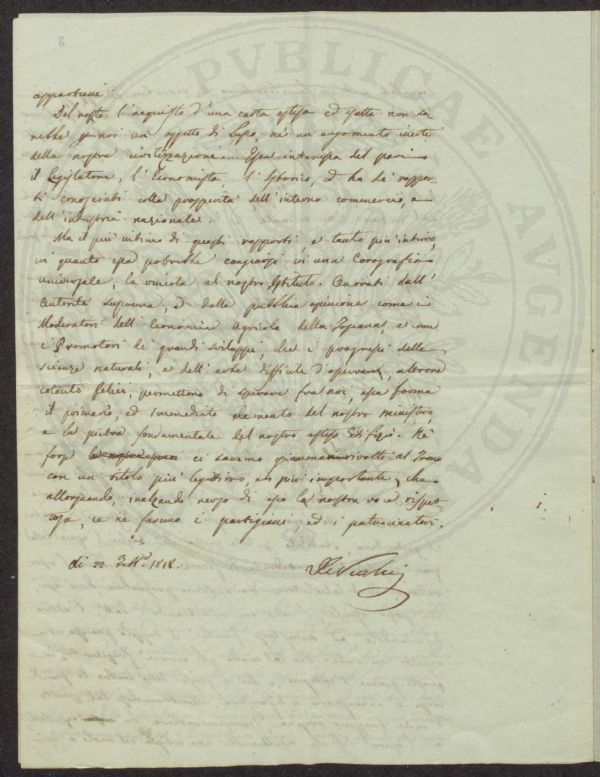 3
PVBLICAE
AVGENDA
Del resto l'acquisto d'una carta estesa ed esatta non sa-
rebbe per noi un oggetto di lusso, nè un argomento inerte
della nostra civilizzazione. Essa interessa del pari
il Legislatore, l'Economista, l'Istorico, ed ha de' rappor-
ti conosciuti colla prosperità dell'interno commercio, e
dell'industria nazionale.
Ma il più intimo di questi rapporti, e tanto più intimo,
in quanto essa potrebbe in una Corografia
universale, la vincola al nostro Istituto. Onorati dall'
Autorità suprema, e dalla pubblica opinione come i
Moderatori dell'Economia Agricola della Toscana, e come
i Promotori di grandi sviluppi, che i progressi delle
scienze naturali, e dell'arte difficile d'osservare, altrove
cotanto felici, permettono di sperare fra noi, essa forma
il primario, ed immediato elemento del nostro ministero,
e la pietra fondamentale del nostro esteso Edifizio. Nè
forse ci saremo giammai rivolti al Trono
con un titolo più legittimo, e più importante, che
allorquando, inalzando verso di esso la nostra voce rispet-
tosa, ce ne faremo i partigiani, ed i patrocinatori.
di 22. 1818.